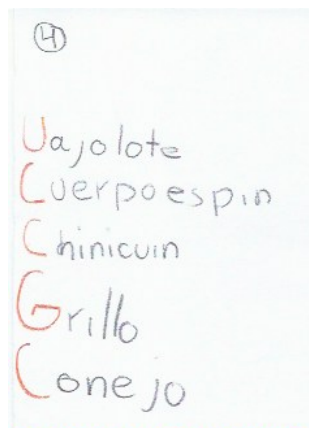 4
Uajolote
Cuerpoespin
Chinicuin
Grillo
Conejo